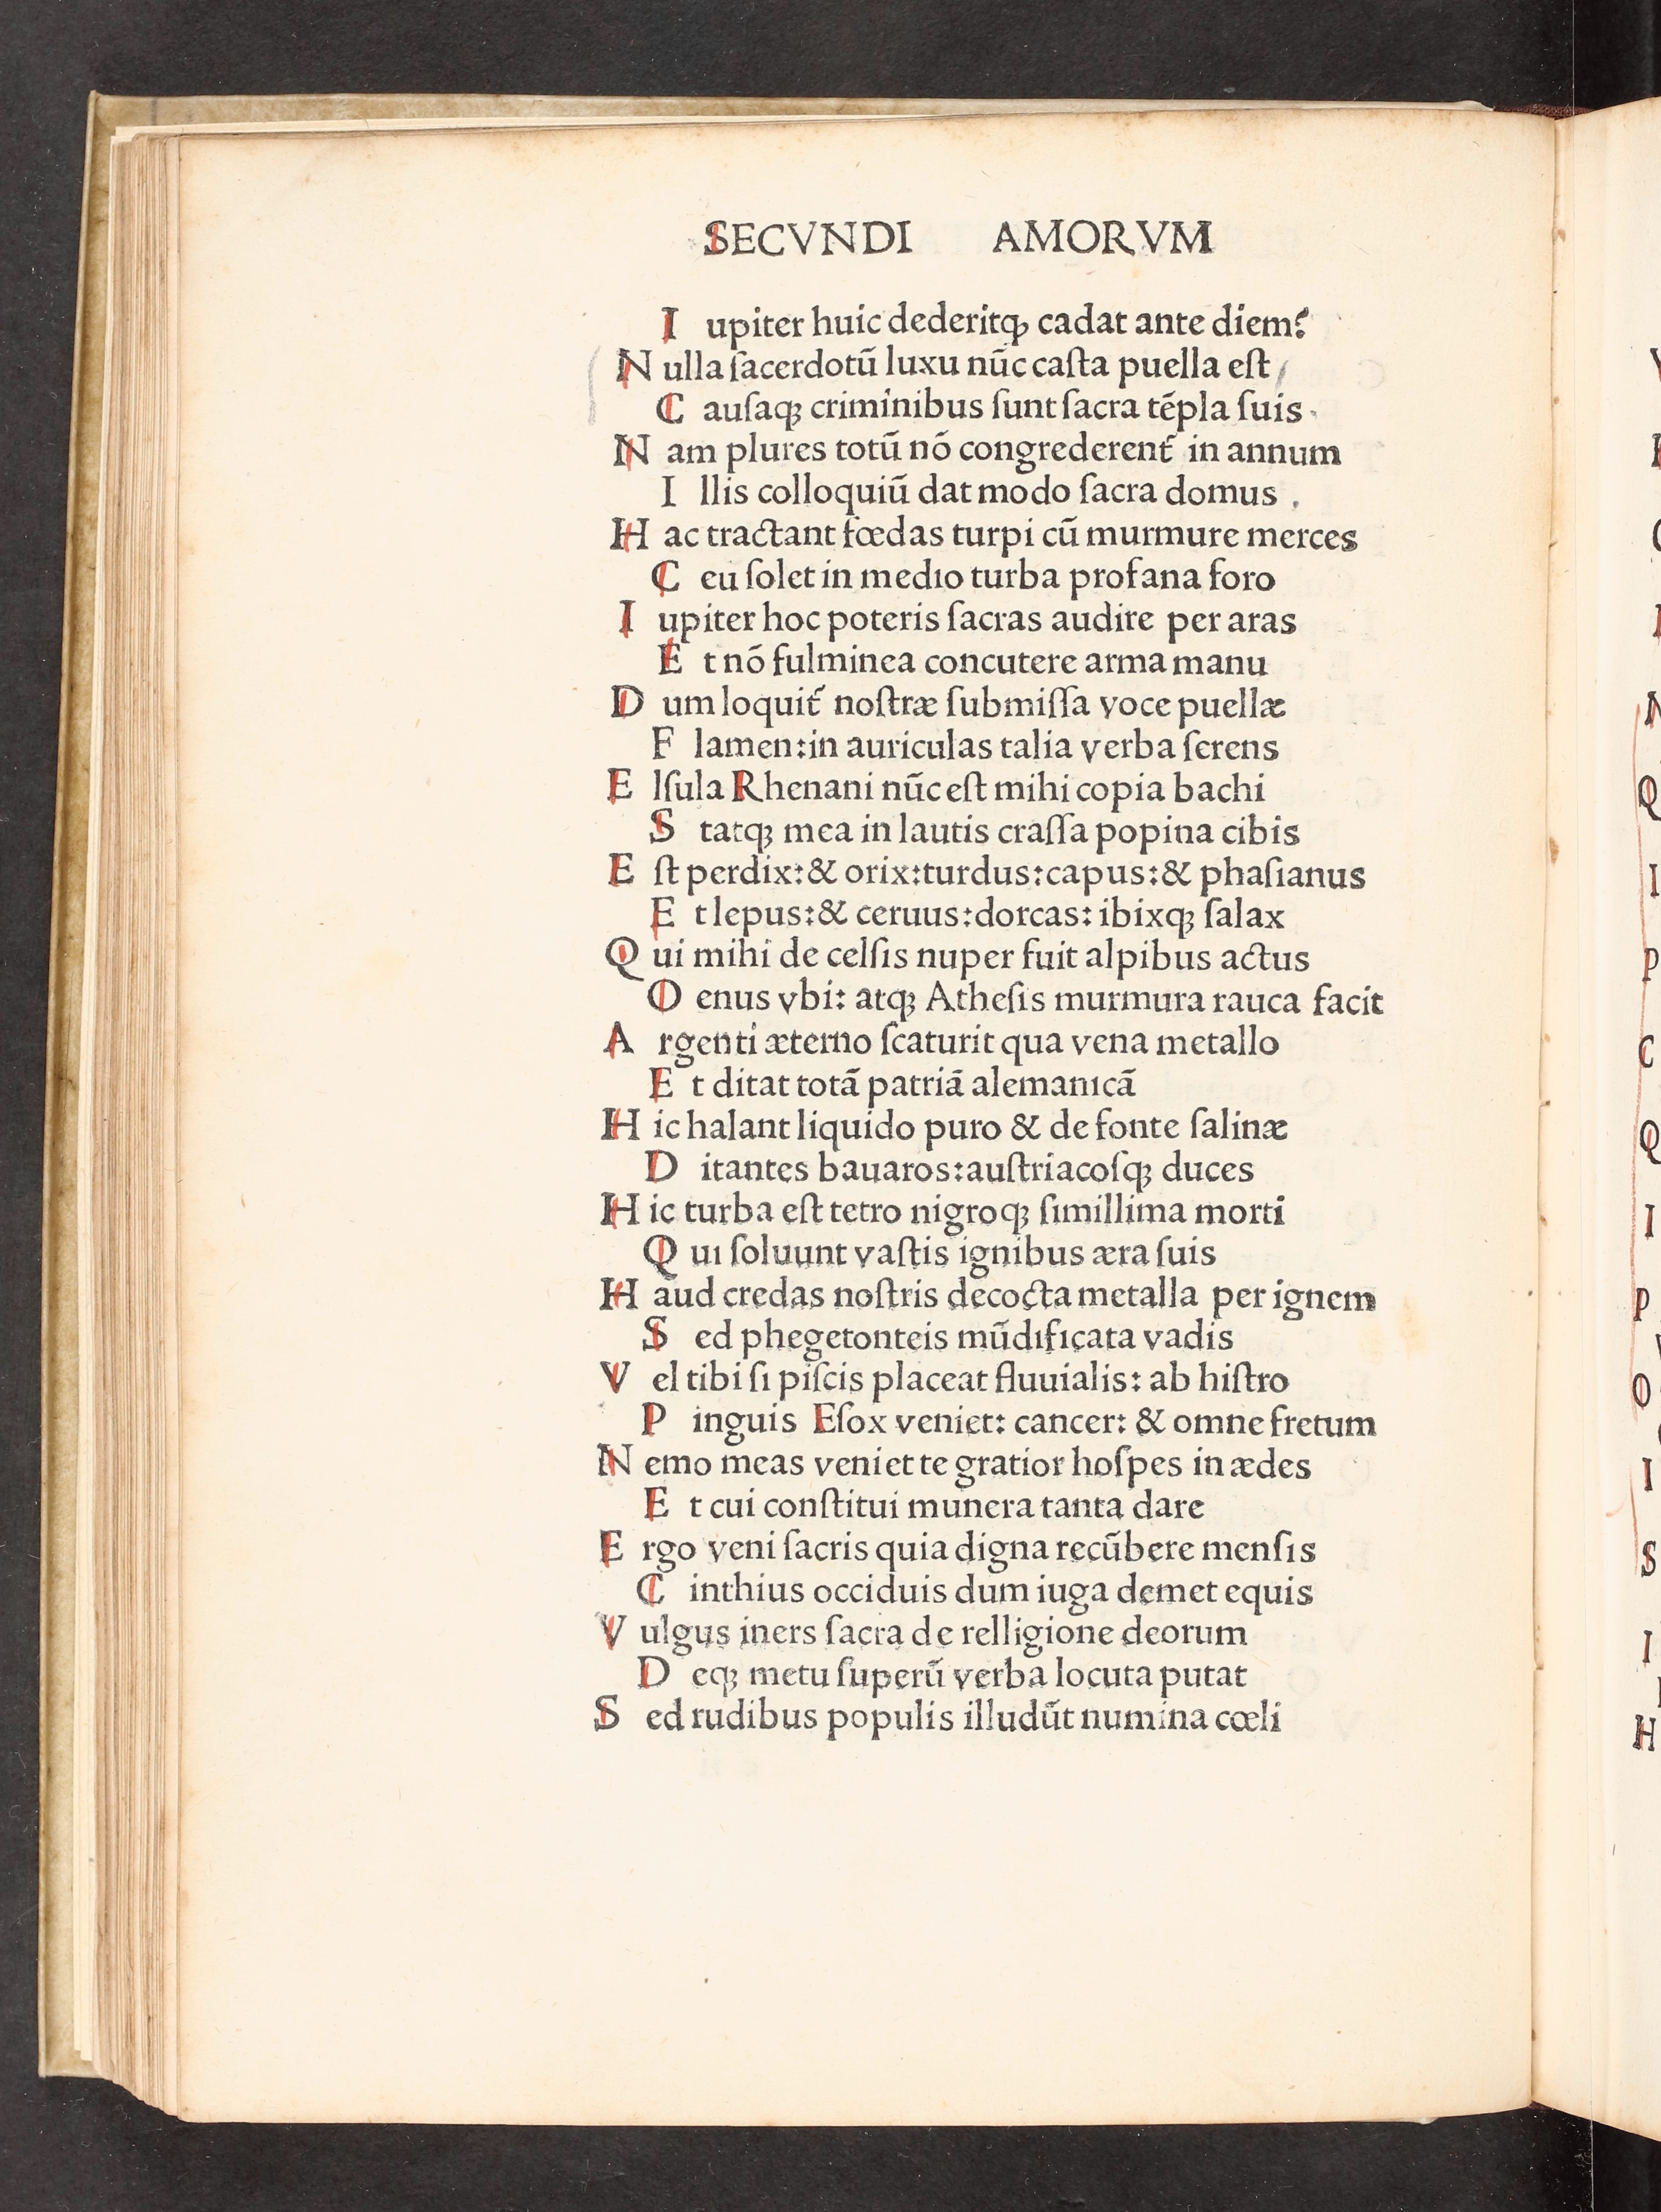 SECVNDI AMORVM
I upiter huic dederitqꝫ cadat ante diem?
N ulla ſacerdotū luxu nūc caſta puella eſt
C auſaqꝫ criminibus ſunt ſacra tēpla ſuis.
N am plures totū nō congrederent᷑ in annum
I llis colloquiū dat modo ſacra domus .
H ac tractant fœdas turpi cū murmure merces
C eu ſolet in medio turba profana foro
I upiter hoc poteris ſacras audire per aras
E t nō fulminea concutere arma manu
D um loquit᷑ noſtræ ſubmiſſa voce puellæ
F lamen:in auriculas talia verba ſerens
E lſula Rhenani nūc eſt mihi copia bachi
S tatqꝫ mea in lautis craſſa popina cibis
E ſt perdix:& orix:turdus:capus:& phaſianus
E t lepus:& ceruus:dorcas: ibixqꝫ ſalax
Q ui mihi de celſis nuper fuit alpibus actus
O enus vbi: atqꝫ Atheſis murmura rauca facit
A rgenti æterno ſcaturit qua vena metallo
E t ditat totā patriā alemanicā
H ic halant liquido puro & de fonte ſalinæ
D itantes bauaros:auſtriacoſqꝫ duces
H ic turba eſt tetro nigroqꝫ ſimillima morti
Q ui ſoluunt vaſtis ignibus æra ſuis
H aud credas noſtris decocta metalla per ignem
S ed phegetonteis mūdificata vadis
V el tibi ſi piſcis placeat fluuialis: ab hiſtro
P inguis Eſox veniet: cancer: & omne fretum
N emo meas veniet te gratior hoſpes in ædes
E t cui conſtitui munera tanta dare
E rgo veni ſacris quia digna recūbere menſis
C inthius occiduis dum iuga demet equis
V ulgus iners ſacra de relligione deorum
D eqꝫ metu ſuperū verba locuta putat
S ed rudibus populis illudūt numina cœli